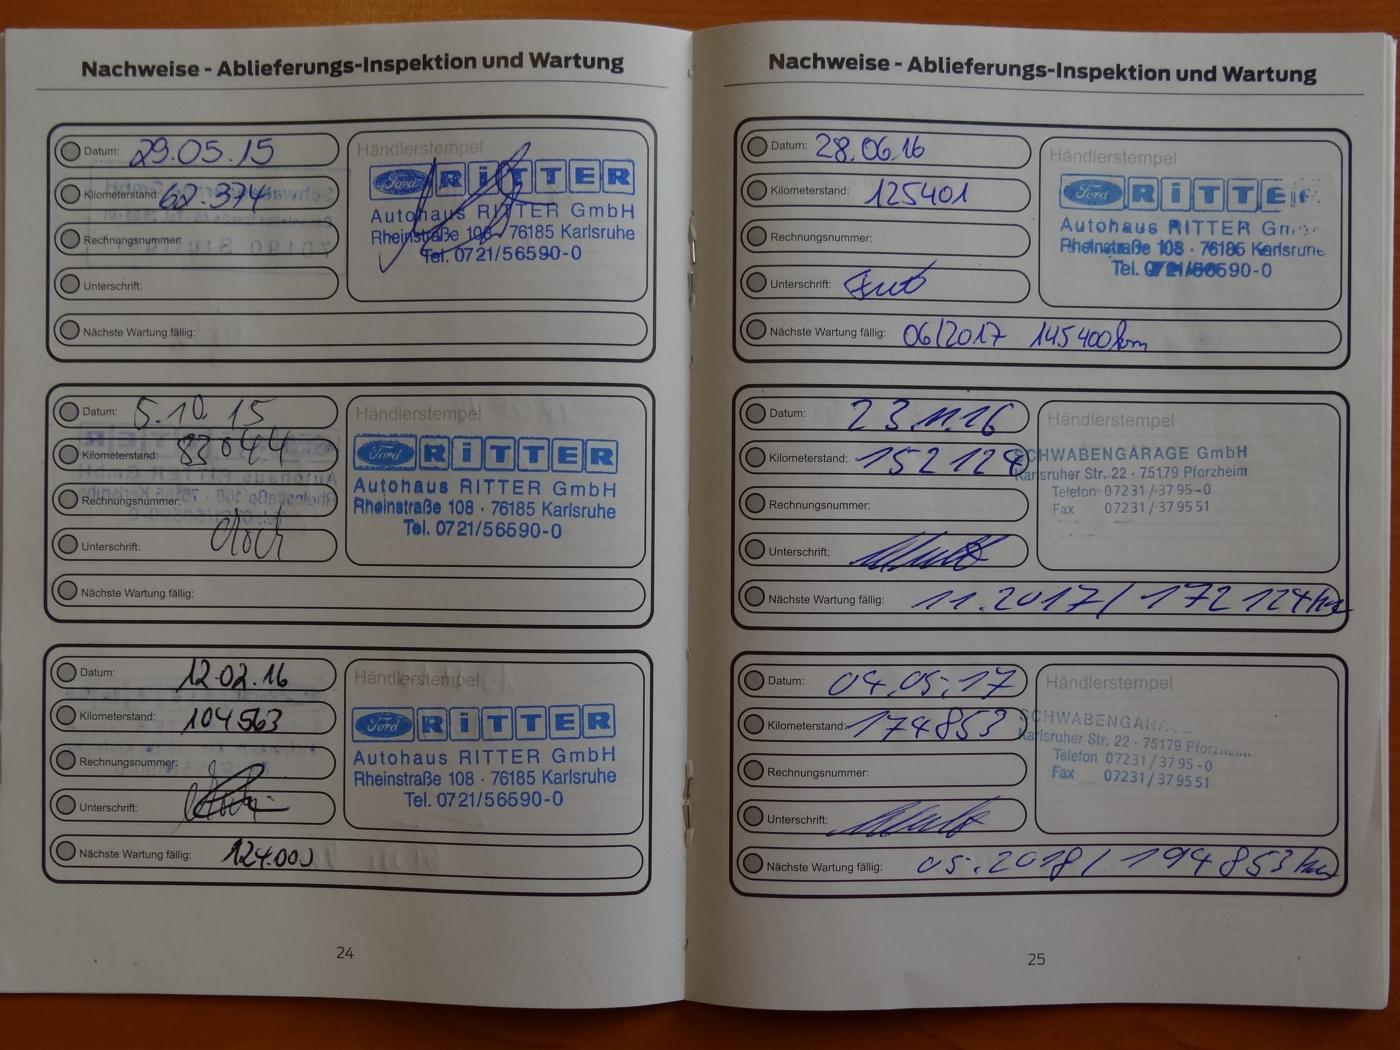 Nachweise - Ablieferungs-Inspektion und Wartung
Datum: 29.05.15
Kilometerstand: 62.374
Rechnungsnummer:
Unterschrift:
Nächste Wartung fällig:
Händlerstempel
Ford RiTTER
Autohaus RITTER GmbH
Rheinstraße 108 · 76185 Karlsruhe
Tel. 0721/56590-0
Datum: 5.10 15
Kilometerstand: 83044
Rechnungsnummer:
Unterschrift:
Nächste Wartung fällig:
Händlerstempel
Ford RiTTER
Autohaus RITTER GmbH
Rheinstraße 108 · 76185 Karlsruhe
Tel. 0721/56590-0
Datum: 12.02.16
Kilometerstand: 104563
Rechnungsnummer:
Unterschrift:
Nächste Wartung fällig: 124.000
Händlerstempel
Ford RiTTER
Autohaus RITTER GmbH
Rheinstraße 108 · 76185 Karlsruhe
Tel. 0721/56590-0
24
Nachweise - Ablieferungs-Inspektion und Wartung
Datum: 28.06.16
Kilometerstand: 125401
Rechnungsnummer:
Unterschrift:
Nächste Wartung fällig: 06/2017 145400km
Händlerstempel
Ford RiTTER
Autohaus RITTER
Rheinstraße 108 · 76185 Karlsruhe
Tel. 0721/56590-0
Datum: 23.11.16
Kilometerstand: 152124
Rechnungsnummer:
Unterschrift:
Nächste Wartung fällig: 11.2017/ 172124km
Händlerstempel
SCHWABENGARAGE GmbH
Karlsruher Str. 22 · 75179 Pforzheim
Telefon 07231/3795-0
Fax 07231/379551
Datum: 04.05.17
Kilometerstand: 174853
Rechnungsnummer:
Unterschrift:
Nächste Wartung fällig: 05.2018/ 194853km
Händlerstempel
SCHWABENGARA
Karlsruher Str. 22 · 75179 Pforzheim
Telefon 07231/3795-0
Fax 07231/379551
25